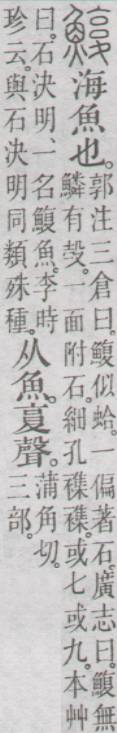 鰒海魚也。
郭注三倉曰。鰒似蛤。一偏著石。廣志曰。鰒無
鱗有㱿。一面附石。細孔襍襍。或七或九。本艸
曰。石決明、一名鰒魚。李時
珍云。與石決明同類殊種。
从魚。复聲。
蒲角切。
三部。